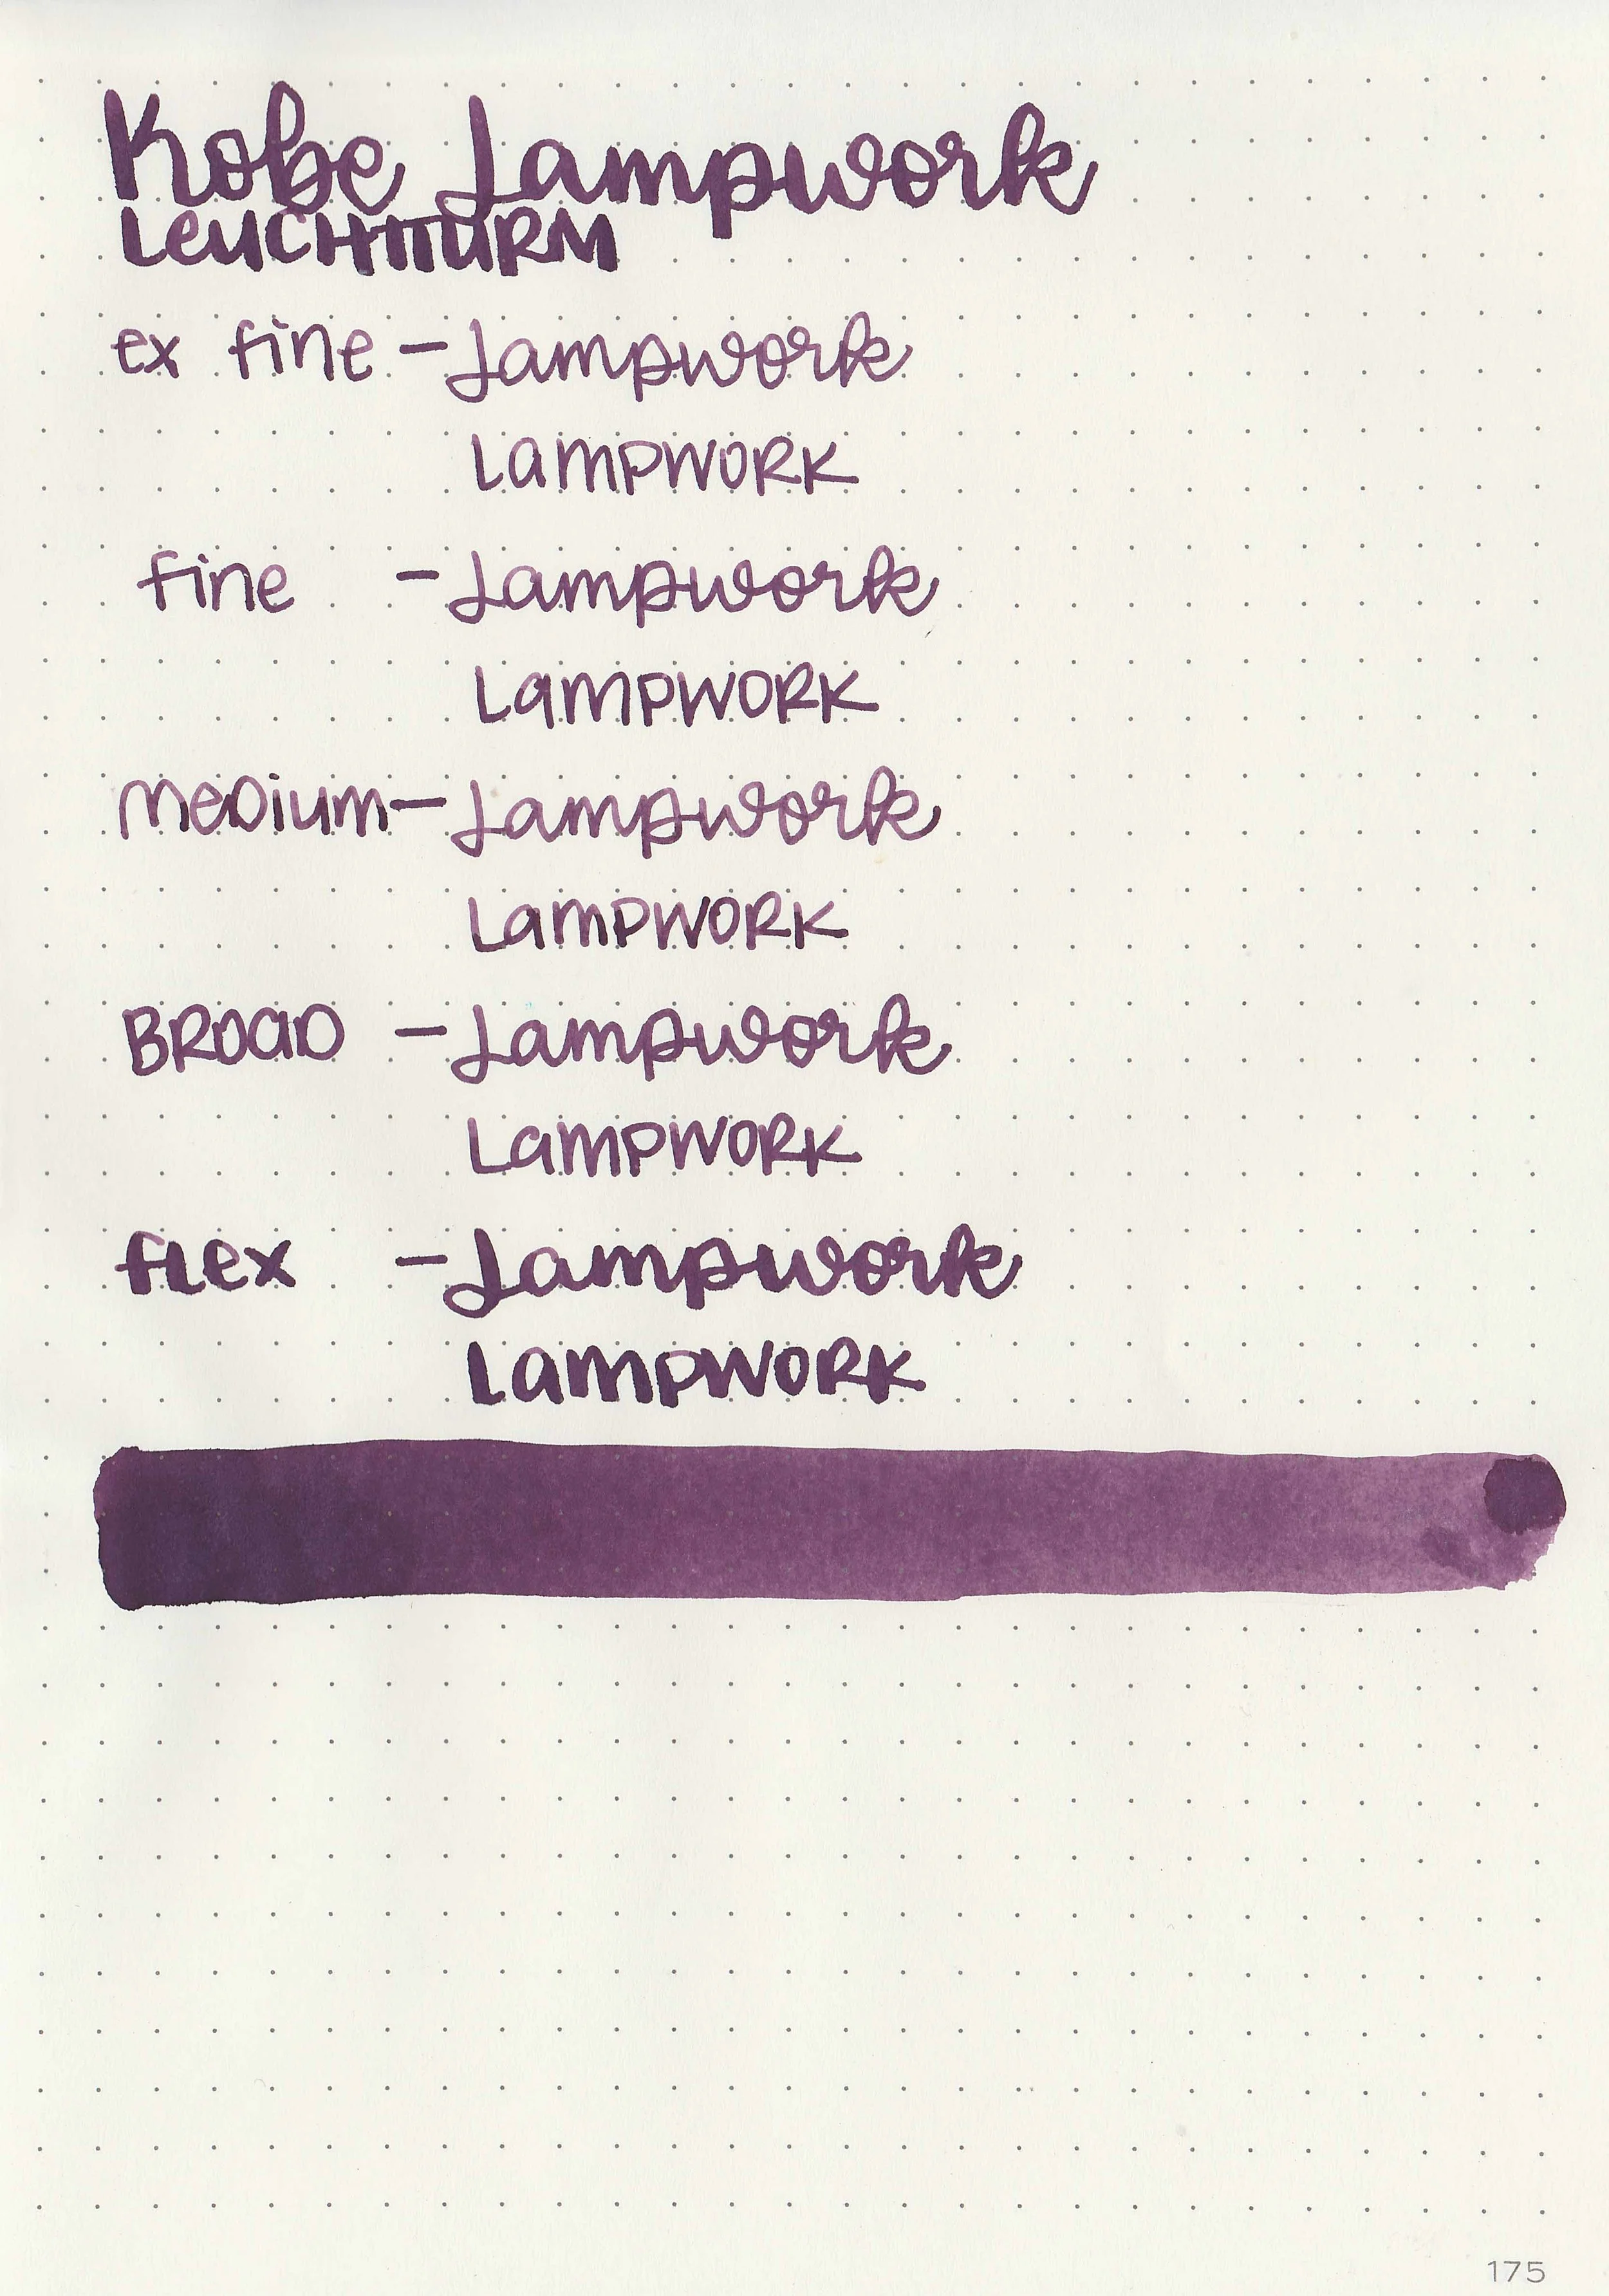 Kobe Lampwork
LeUCHTTURM
ex fine - Lampwork
LampWORK
fine - Lampwork
LampWORK
meDium - Lampwork
LampWORK
BROaD - Lampwork
LampWORK
flex - Lampwork
LampWORK
175